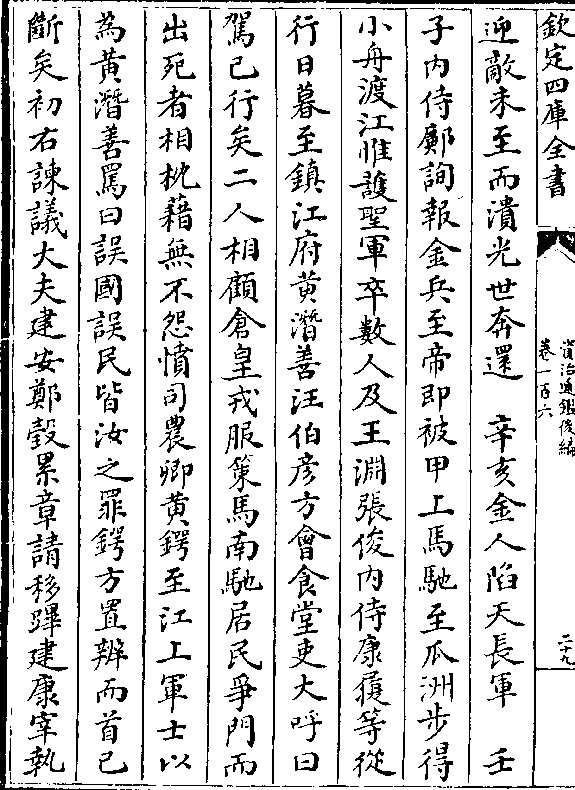 欽定四庫全書
資治通鑑後編
卷一百六
二十九
迎敵未至而潰光世奔還　辛亥金人陷天長軍　壬
子内侍鄺詢報金兵至帝即被甲上馬馳至瓜洲步得
小舟渡江惟護聖軍卒數人及王淵張俊内侍康履等從
行日暮至鎮江府黄潛善汪伯彦方會食堂吏大呼曰
駕已行矣二人相顧倉皇戎服策馬南馳居民爭門而
出死者相枕藉無不怨憤司農卿黄鍔至江上軍士以
為黄潛善罵曰誤國誤民皆汝之罪鍔方置辨而首已
斷矣初右諫議大夫建安鄭瑴累章請移蹕建康宰執